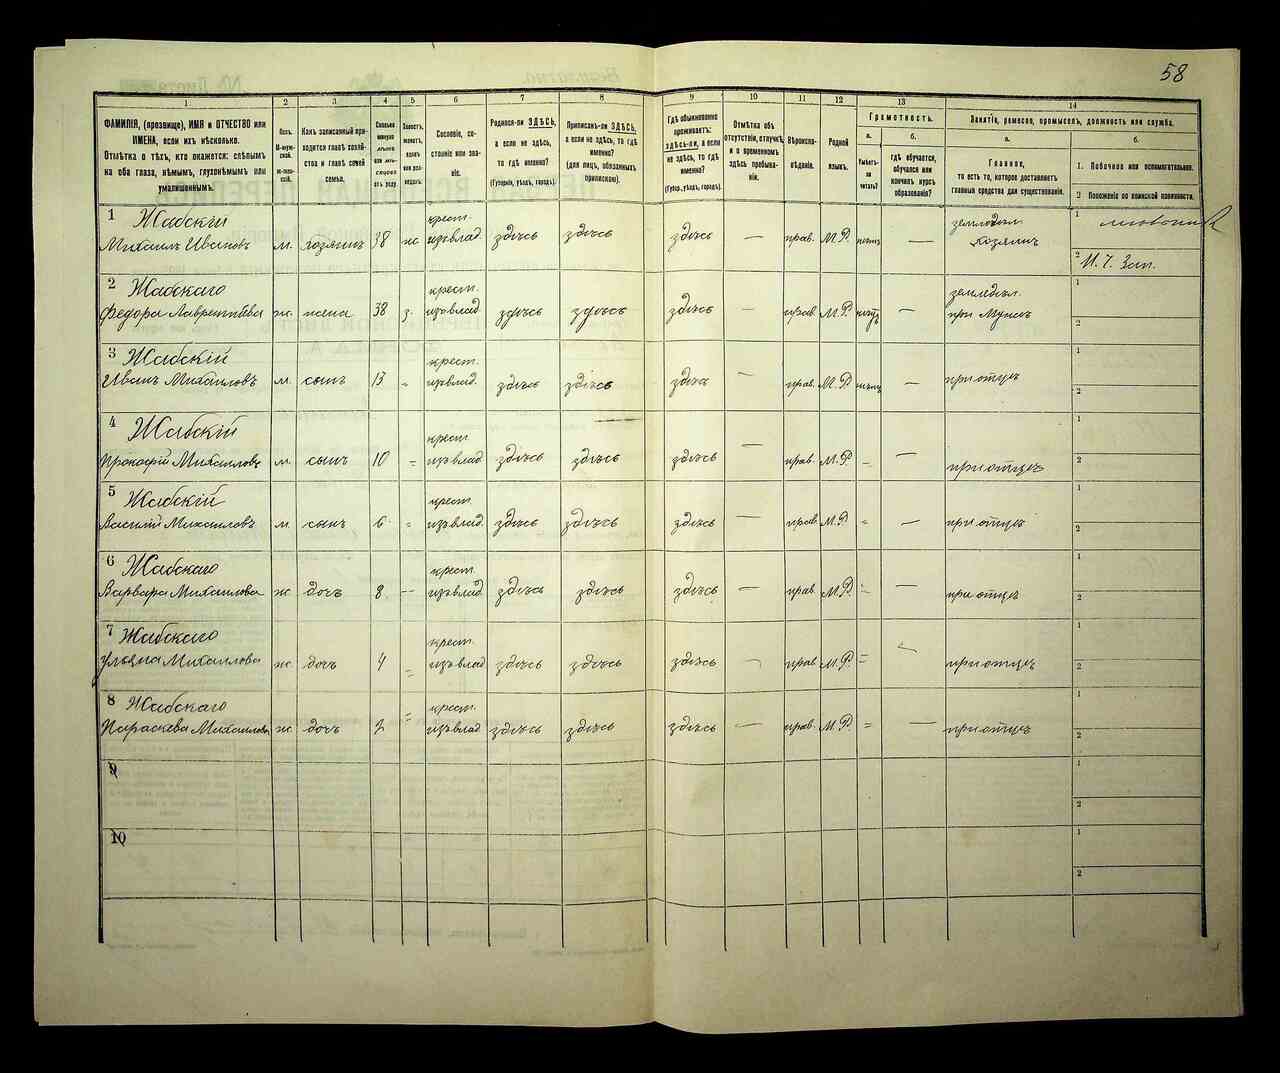 58
1 2 3 4 5 6 7 8 9 10 11 12 13 14
ФАМИЛІЯ, (прозвище), ИМЯ и ОТЧЕСТВО или
ИМЕНА, если ихъ нѣсколько.
Отмѣтка о тѣхъ, кто окажется: слѣпымъ
на оба глаза, нѣмымъ, глухонѣмымъ или
умалишеннымъ.
Полъ.
М-мужской.
Ж-женскій.
Какъ записанный приходится
главѣ хозяйства
и главѣ своей
семьи.
Сколько
минуло
лѣтъ
или мѣсяцевъ
отъ роду
Холостъ,
женатъ,
вдовъ
или разведенъ.
Сословіе, состояніе
или званіе.
Родился-ли ЗДѢСЬ,
а если не здѣсь,
то гдѣ именно?
(Губернія, уѣздъ, городъ).
Приписанъ-ли ЗДѢСЬ,
а если не здѣсь, то гдѣ
именно?
(для лицъ, обязанныхъ
припискою).
Гдѣ обыкновенно
проживаетъ:
здѣсь-ли, а если
не здѣсь, то гдѣ
именно?
(Губер., уѣздъ, городъ).
Отмѣтка объ
отсутствіи, отлучкѣ
и о временномъ
здѣсь пребываніи.
Вѣроисповѣданіе.
Родной
языкъ.
Грамотность.
а. б.
Умѣетъ-ли
читать?
гдѣ обучается,
обучался или
кончилъ курсъ
образованія?
Занятіе, ремесло, промыселъ, должность или служба.
а. б.
Главное,
то есть то, которое доставляетъ
главныя средства для существованія.
1. Побочное или вспомогательное.
2. Положеніе по воинской повинности.
1 Жабскій крест. земледѣл. 1
Михаилъ Ивановъ м. хозяинъ 38 же изъ влад. здѣсь здѣсь здѣсь — прав. М.Р. нѣтъ — хозяинъ
2 И. Ч. Зап.
2 Жабскаго крест. земледѣл. 1
Федора Лаврентьева ж. жена 38 з. изъ влад. здѣсь здѣсь здѣсь — прав. М.Р. нѣтъ — при Мужѣ 2
3 Жабскій крест. 1
Иванъ Михаиловъ м. сынъ 13 - изъ влад. здѣсь здѣсь здѣсь — прав. М.Р. — при отцѣ 2
4 Жабскій крест. 1
Прокофій Михаиловъ м. сынъ 10 = изъ влад. здѣсь здѣсь здѣсь — прав. М.Р. - — при отцѣ 2
5 Жабскій крест. 1
Василій Михаиловъ м. сынъ 6 - изъ влад. здѣсь здѣсь здѣсь — прав. М.Р. - — при отцѣ 2
6 Жабскаго крест. 1
Варвара Михаилова ж. дочь 8 -- изъ влад. здѣсь здѣсь здѣсь — прав. М.Р. = — при отцѣ 2
7 Жабскаго крест. 1
Ульяна Михаилова ж. дочь 4 = изъ влад. здѣсь здѣсь здѣсь — прав. М.Р. = — при отцѣ 2
8 Жабскаго крест. 1
Параскева Михаилова ж. дочь 2 = изъ влад. здѣсь здѣсь здѣсь — прав. М.Р. = — при отцѣ 2
9 1
2
10 1
2